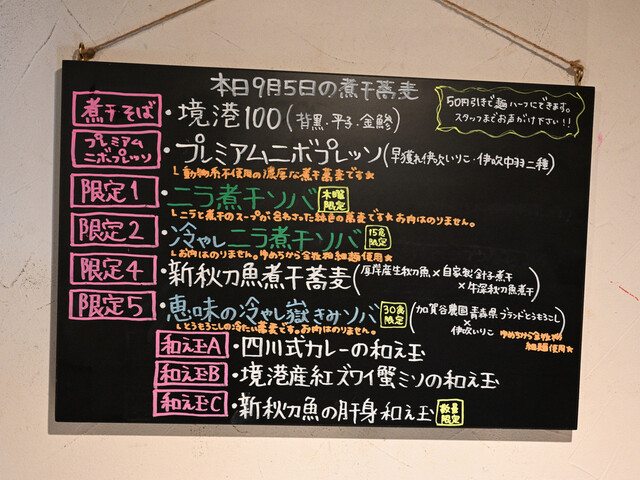 本日9月5日の煮干蕎麦
50円引きで麺ハーフにできます。
スタッフまでお声がけ下さい!!
煮干そば ・境港100(背黒・平子・金鯵)
プレミアムニボプレッソ ・プレミアムニボプレッソ(早獲れ伊吹いりこ・伊吹中羽二種)
└動物系不使用の濃厚な煮干蕎麦です☆
限定1 ・ニラ煮干ソバ 木曜限定
└ニラと煮干のスープが合わさった緑色の蕎麦です☆お肉はのりません。
限定2 ・冷やしニラ煮干ソバ 15食限定
└お肉はのりません。ゆめちから全粒粉細麺使用☆
限定4 ・新秋刀魚煮干蕎麦(厚岸産生秋刀魚×自家製金干し煮干×牛深秋刀魚煮干)
限定5 ・恵味の冷やし嶽きみソバ 30食限定 (加賀谷農園 青森県ブランドとうもろこし×伊吹いりこ)
└とうもろこしの冷たい蕎麦です。お肉はのりません。
ゆめちから全粒粉細麺使用☆
和え玉A ・四川式カレーの和え玉
和え玉B ・境港産紅ズワイ蟹ミソの和え玉
和え玉C ・新秋刀魚の肝身和え玉 数量限定